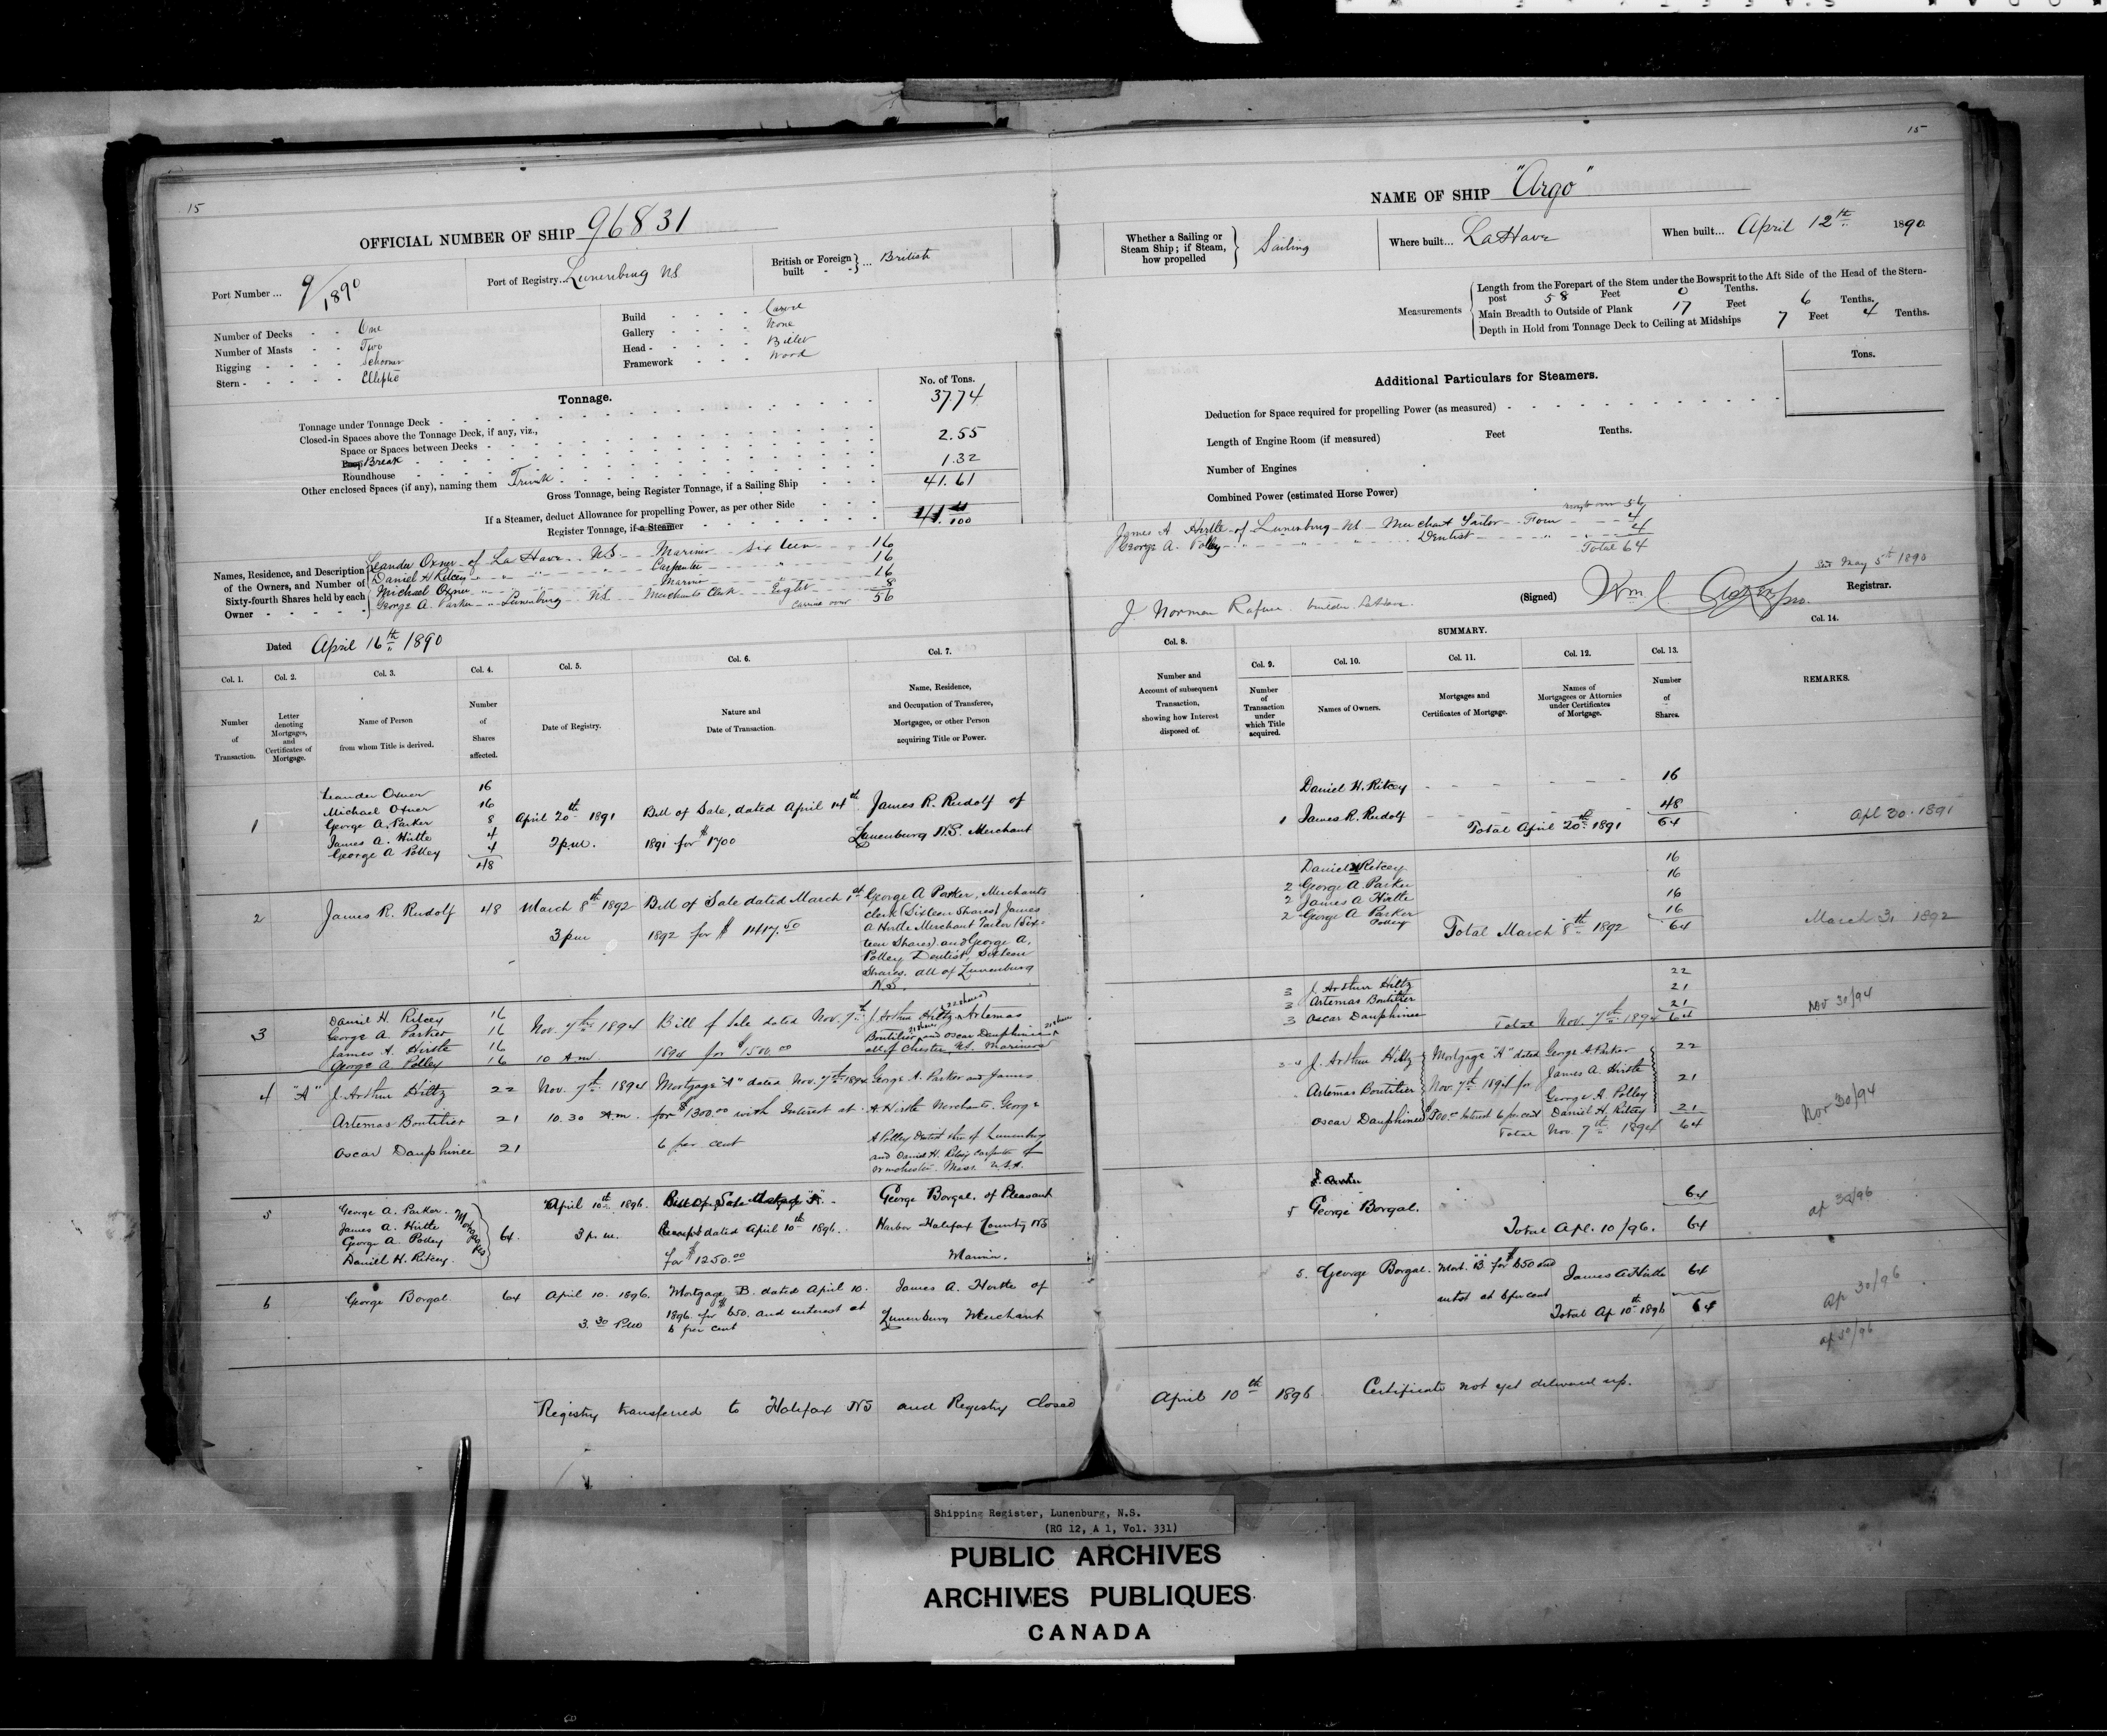 15
OFFICIAL NUMBER OF SHIP 96831
Port Number ... 9/1890
Port of Registry... Lunenburg NS
British or Foreign built - - } ... British
Number of Decks - - One
Number of Masts - - Two
Rigging - - - - - Schooner
Stern - - - - - - Elliptic
Build - - - - Carvel
Gallery - - - - None
Head - - - - Billet
Framework - - - Wood
Tonnage.
No. of Tons.
Tonnage under Tonnage Deck - 37.74
Closed-in Spaces above the Tonnage Deck, if any, viz.,
Space or Spaces between Decks -
Break 2.55
Roundhouse
Other enclosed Spaces (if any), naming them Trunk 1.32
Gross Tonnage, being Register Tonnage, if a Sailing Ship 41.61
If a Steamer, deduct Allowance for propelling Power, as per other Side
Register Tonnage, if a Steamer
Names, Residence, and Description of the Owners, and Number of Sixty-fourth Shares held by each Owner
Leander Oxner of La Have NS Mariner sixteen 16
Daniel H Ritcey " " " Carpenter " 16
Michael Oxner " " " Marine 16
George A. Parker " Lunenburg NS Merchants Clerk Eight 8
Carried over 56
Dated April 16th 1890
Col. 1. Col. 2. Col. 3. Col. 4. Col. 5. Col. 6. Col. 7.
Number of Transaction.
Letter denoting Mortgages, and Certificates of Mortgage.
Name of Person from whom Title is derived.
Number of Shares affected.
Date of Registry.
Nature and Date of Transaction.
Name, Residence, and Occupation of Transferee, Mortgagee, or other Person acquiring Title or Power.
1
Leander Oxner 16
Michael Oxner 16
George A. Parker 8
James A. Hirtle 4
George A Polley 4
48
April 20th 1891
2 p.m.
Bill of Sale, dated April 14th
1891 for $1700
James R. Rudolf of
Lunenburg N.S. Merchant
2
James R. Rudolf 48
March 8th 1892
3 pm
Bill of Sale dated March 1st
1892 for $ 1417.50
George A Parker, Merchants
clerk (Sixteen Shares) James
A Hirtle Merchant Tailor (Six-
teen Shares) and George A.
Polley Dentist, Sixteen
Shares. all of Lunenburg
N.S.
3
Daniel H. Ritcey 16
George A. Parker 16
James A. Hirtle 16
George A. Polley 16
Nov. 7th 1894
10 A.m.
Bill of Sale dated Nov. 7th
1894 for $1500.00
J. Arthur Hiltz (22 shares) Artemas
Boutilier 21 shares and Oscar Dauphinee 21 shares
all of Chester, NS. Mariners
4 "A"
J. Arthur Hiltz 22
Artemas Boutilier 21
Oscar Dauphinee 21
Nov. 7th 1894
10.30 A.m.
Mortgage "A" dated Nov. 7th 1894
for $1300.00 with Interest at
6 per cent
George A. Parker and James
A. Hirtle Merchants. George
A Polley Dentist of Lunenburg
and Daniel H. Ritcey Carpenter of
Winchester. Mass. U.S.A.
5
George A. Parker.
James A. Hirtle
George A. Polley
Daniel H. Ritcey.
Mortgagees
64.
April 10th 1896.
3 p.m.
Bill of Sale
Receipt dated April 10th 1896.
for $1250.00
George Borgal. of Pleasant
Harbor Halifax County NS
Marine.
6
George Borgal 64
April 10. 1896.
3.30 P.M
Mortgage B. dated April 10.
1896. for $650. and interest at
6 per cent
James A. Hirtle of
Lunenburg Merchant
Registry transferred to Halifax NS and Registry Closed
15
NAME OF SHIP "Argo"
Whether a Sailing or Steam Ship; if Steam, how propelled } Sailing
Where built... LaHave
When built... April 12th 1890
Measurements
Length from the Forepart of the Stem under the Bowsprit to the Aft Side of the Head of the Stern-
post 58 Feet 0 Tenths.
Main Breadth to Outside of Plank 17 Feet 6 Tenths.
Depth in Hold from Tonnage Deck to Ceiling at Midships 7 Feet 4 Tenths.
Additional Particulars for Steamers.
Tons.
Deduction for Space required for propelling Power (as measured)
Length of Engine Room (if measured) Feet Tenths.
Number of Engines
Combined Power (estimated Horse Power)
brought over 56
James A Hirtle of Lunenburg NS Merchant Tailor Four 4
George A. Polley " " " Dentist " 4
Total 64
May 5th 1890
J. Norman Rafuse builder LaHave.
(Signed) Wm
Registrar.
SUMMARY.
Col. 8. Col. 9. Col. 10. Col. 11. Col. 12. Col. 13. Col. 14.
Number and Account of subsequent Transaction, showing how Interest disposed of.
Number of Transaction under which Title acquired.
Names of Owners.
Mortgages and Certificates of Mortgage.
Names of Mortgagees or Attornies under Certificates of Mortgage.
Number of Shares.
REMARKS.
Daniel H. Ritcey 16
1 James R. Rudolf 48
Total April 20th 1891 64
Apl 30. 1891
Daniel H Ritcey 16
2 George A. Parker 16
2 James A Hirtle 16
2 George A Parker Polley 16
Total March 8th 1892 64
March 31 1892
3 J. Arthur Hiltz 22
3 Artemas Boutilier 21
3 Oscar Dauphinee 21
Total Nov. 7th 1894 64
Nov 30/94
3-4 J. Arthur Hiltz Mortgage "A" dated George A. Parker 22
James A. Hirtle
Artemas Boutilier Nov. 7th 1894 for 21
George A. Polley
Oscar Dauphinee $1300.00 Interest 6 per cent Daniel H. Ritcey 21
Total Nov. 7th 1894 64
Nov 30/94
5 George Borgal. 64
Total Apl. 10/96. 64
ap 30/96
5. George Borgal. Mort. "B" for $650 and James A Hirtle 64
intrst at 6 per cent
Total Ap 10th 1896 64
ap 30/96
ap 30/96
April 10th 1896 Certificate not yet delivered up.
Shipping Register, Lunenburg, N.S.
(RG 12, A 1, Vol. 331)
PUBLIC ARCHIVES
ARCHIVES PUBLIQUES
CANADA